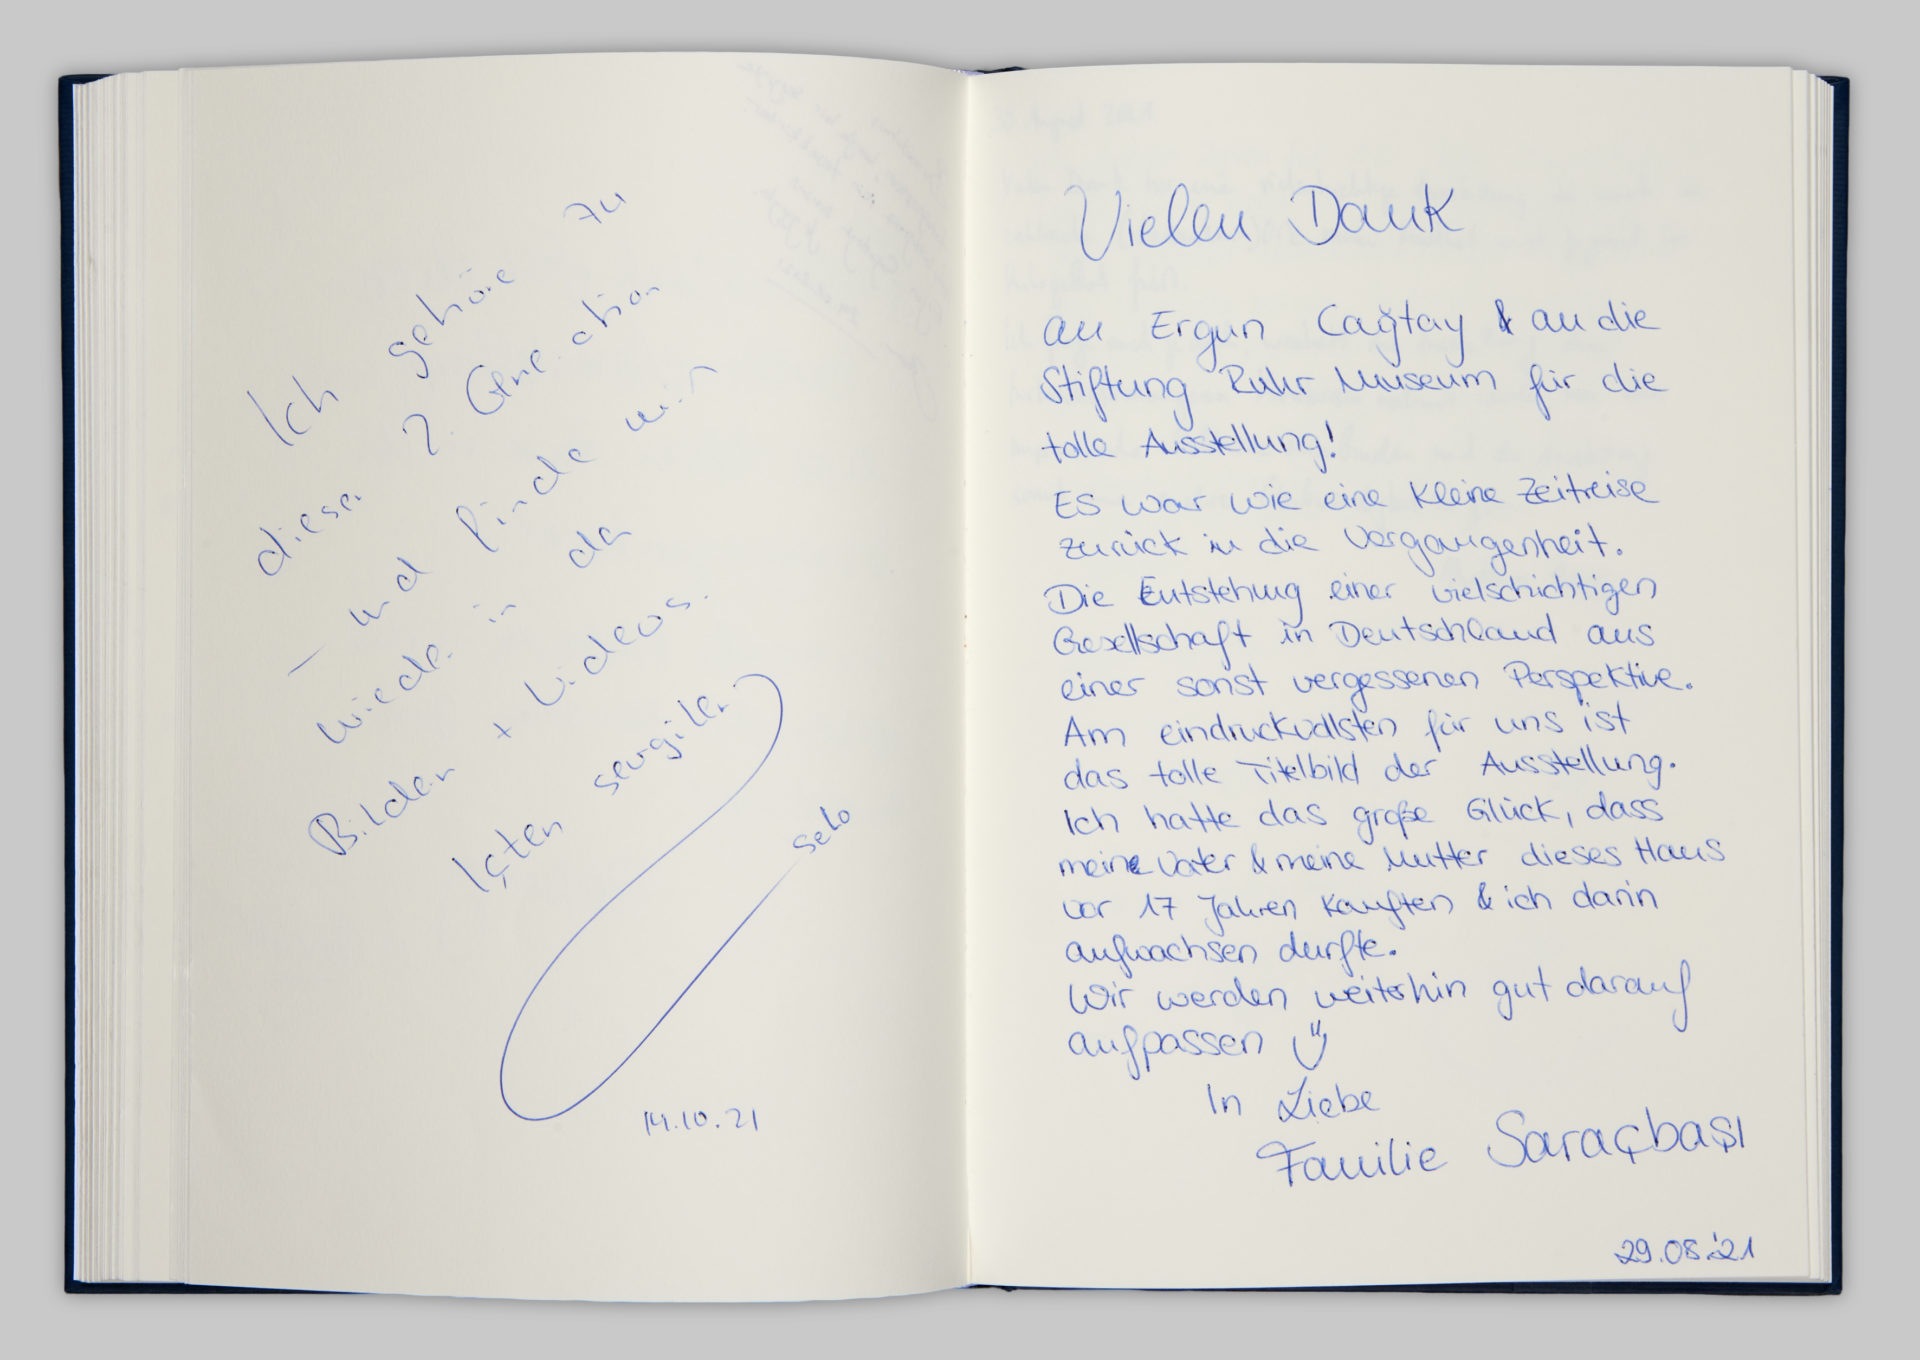 Ich gehöre zu
dieser 2 Generation
– und finde mich
wieder in den
Bildern + Videos.
Içten sevgiler
selo
14.10.21
Vielen Dank
an Ergun Cağtay & an die
Stiftung Ruhr Museum für die
tolle Ausstellung!
Es war wie eine kleine Zeitreise
zurück in die Vergangenheit.
Die Entstehung einer vielschichtigen
Gesellschaft in Deutschland aus
einer sonst vergessenen Perspektive.
Am eindruckvollsten für uns ist
das tolle Titelbild der Ausstellung.
Ich hatte das große Glück, dass
meine Vater & meine Mutter dieses Haus
vor 17 Jahren kauften & ich darin
aufwachsen durfte.
Wir werden weiterhin gut darauf
aufpassen
In Liebe
Familie Saraçbaşı
29.08.'21